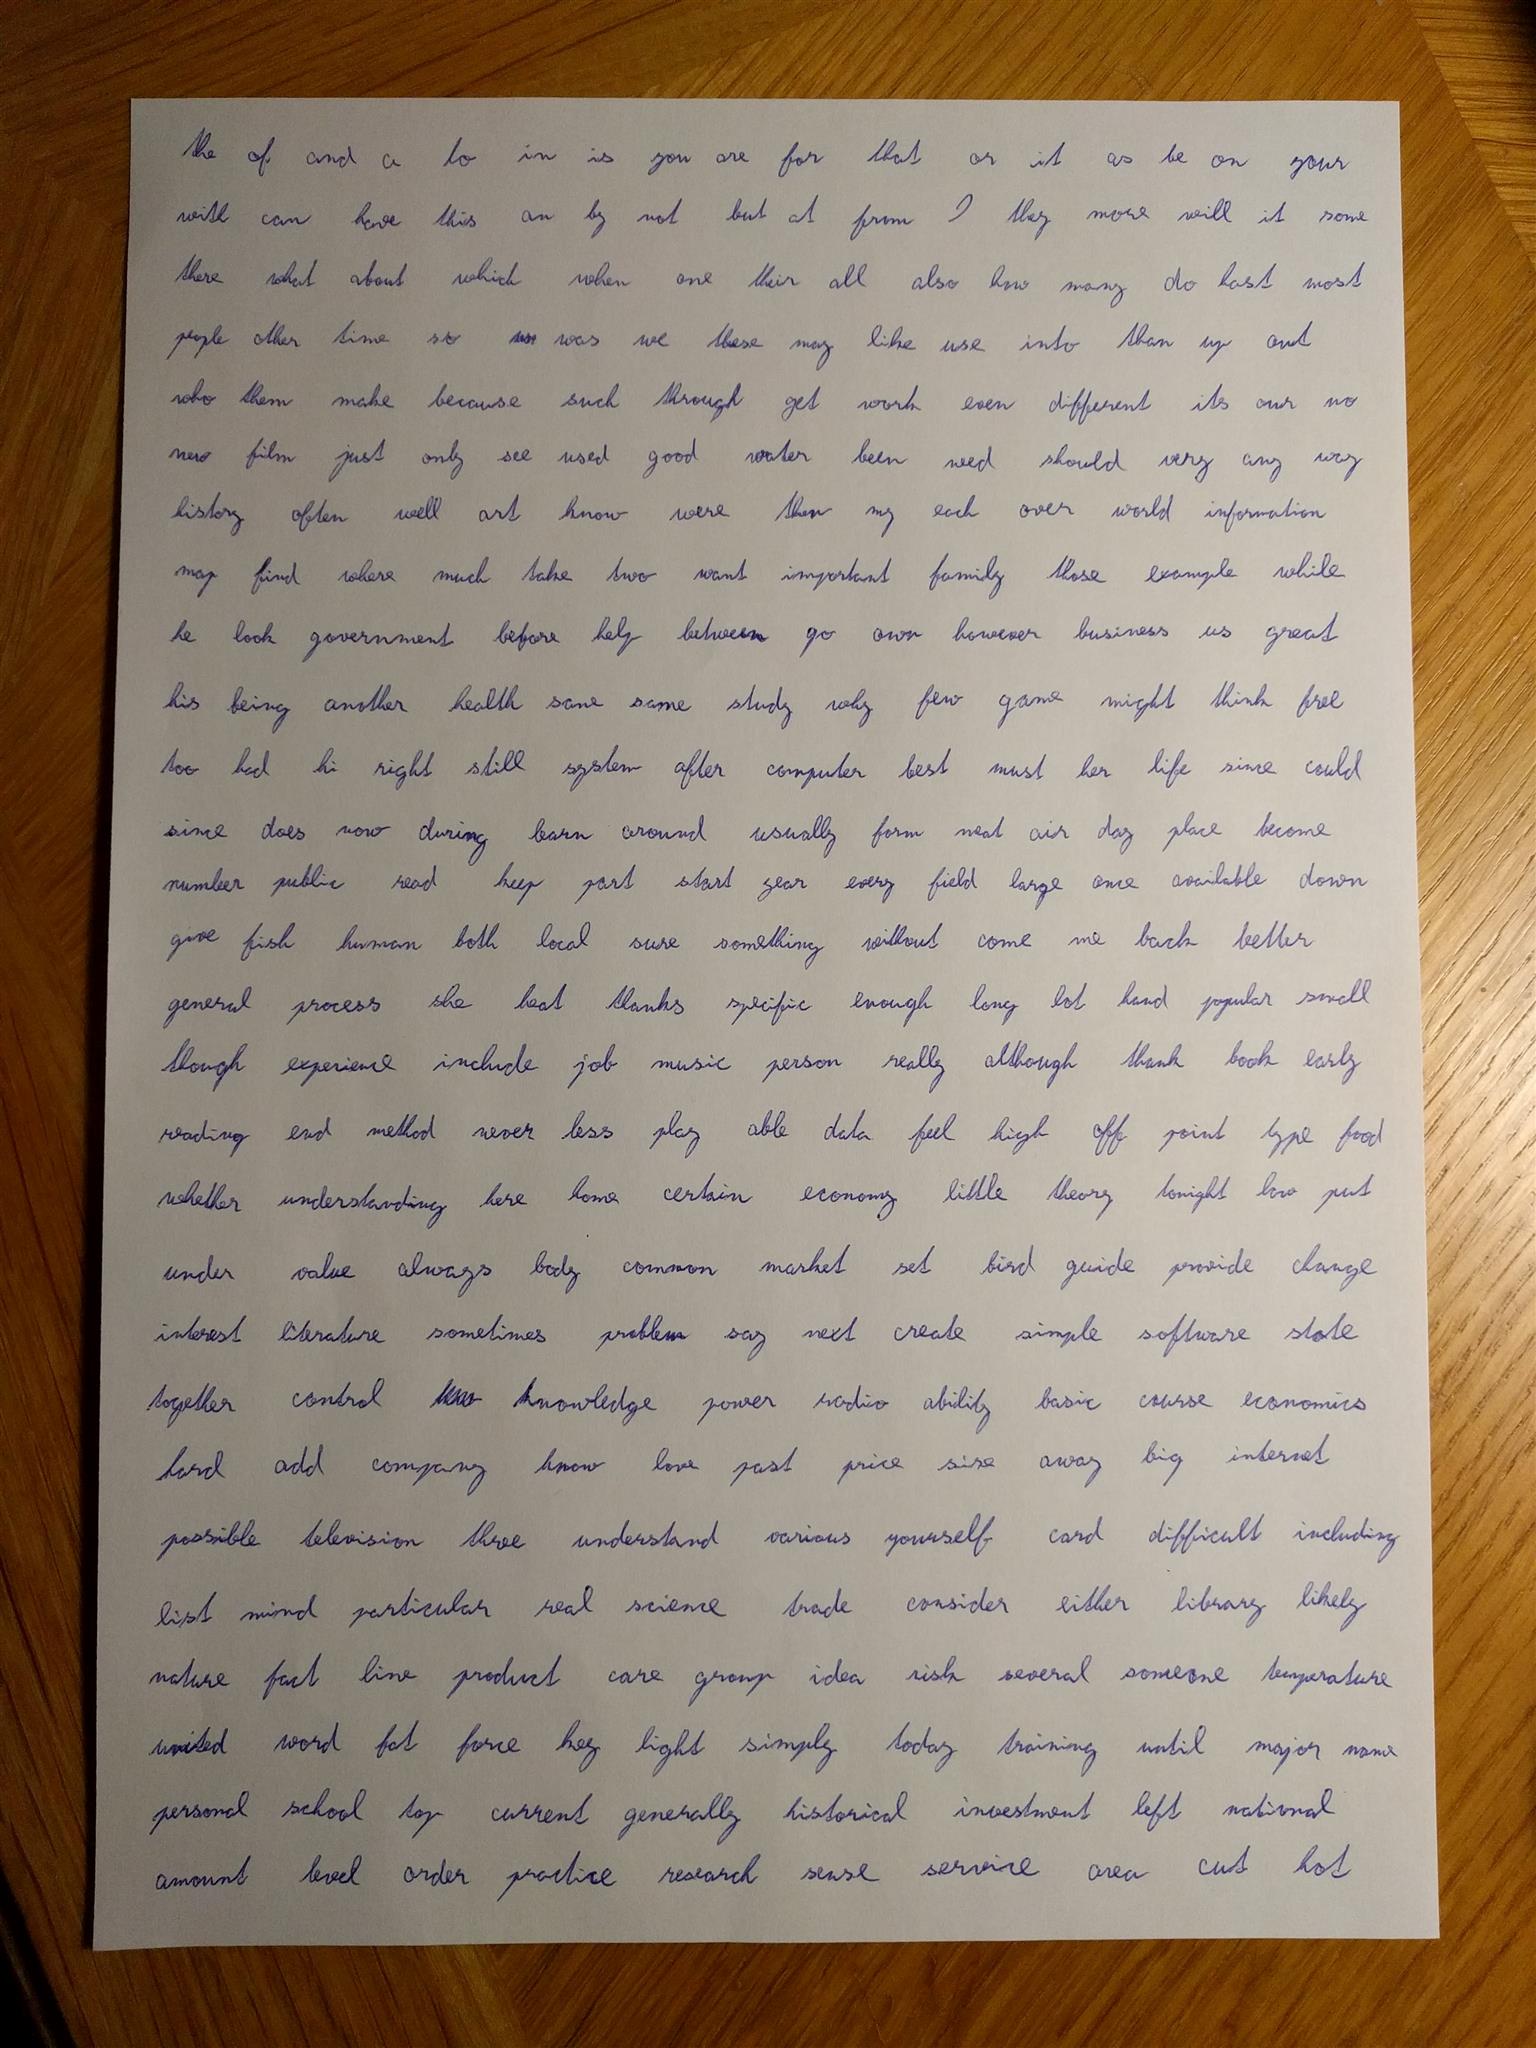 the of and a to in is you are for that or it as be on your
with can have this an by not but at from I they more will it some
there what about which when one their all also how many do hast most
people other time so was we these may like use into than up out
who them make because such through get work even different its our no
new film just only see used good water been need should very any way
history often well art know were then my each over world information
map find where much take two want important family those example while
he look government before help between go own however business us great
his being another health same same study why few game might think free
too had hi right still system after computer best must her life since could
since does now during learn around usually form meat air day place become
number public read keep part start year every field large once available down
give fish human both local sure something without come me back better
general process she heat thanks specific enough long lot hand popular small
though experience include job music person really although thank book early
reading end method never less play able data feel high off point type food
whether understanding here home certain economy little theory tonight low put
under value always body common market set bird guide provide change
interest literature sometimes problem say next create simple software state
together control knowledge power radio ability basic course economics
hard add company know love past price size away big internet
possible television three understand various yourself card difficult including
list mind particular real science trade consider either library likely
nature fact line product care group idea risk several someone temperature
united word fat force key light simply today training until major name
personal school top current generally historical investment left national
amount level order practice research sense service area cut hot